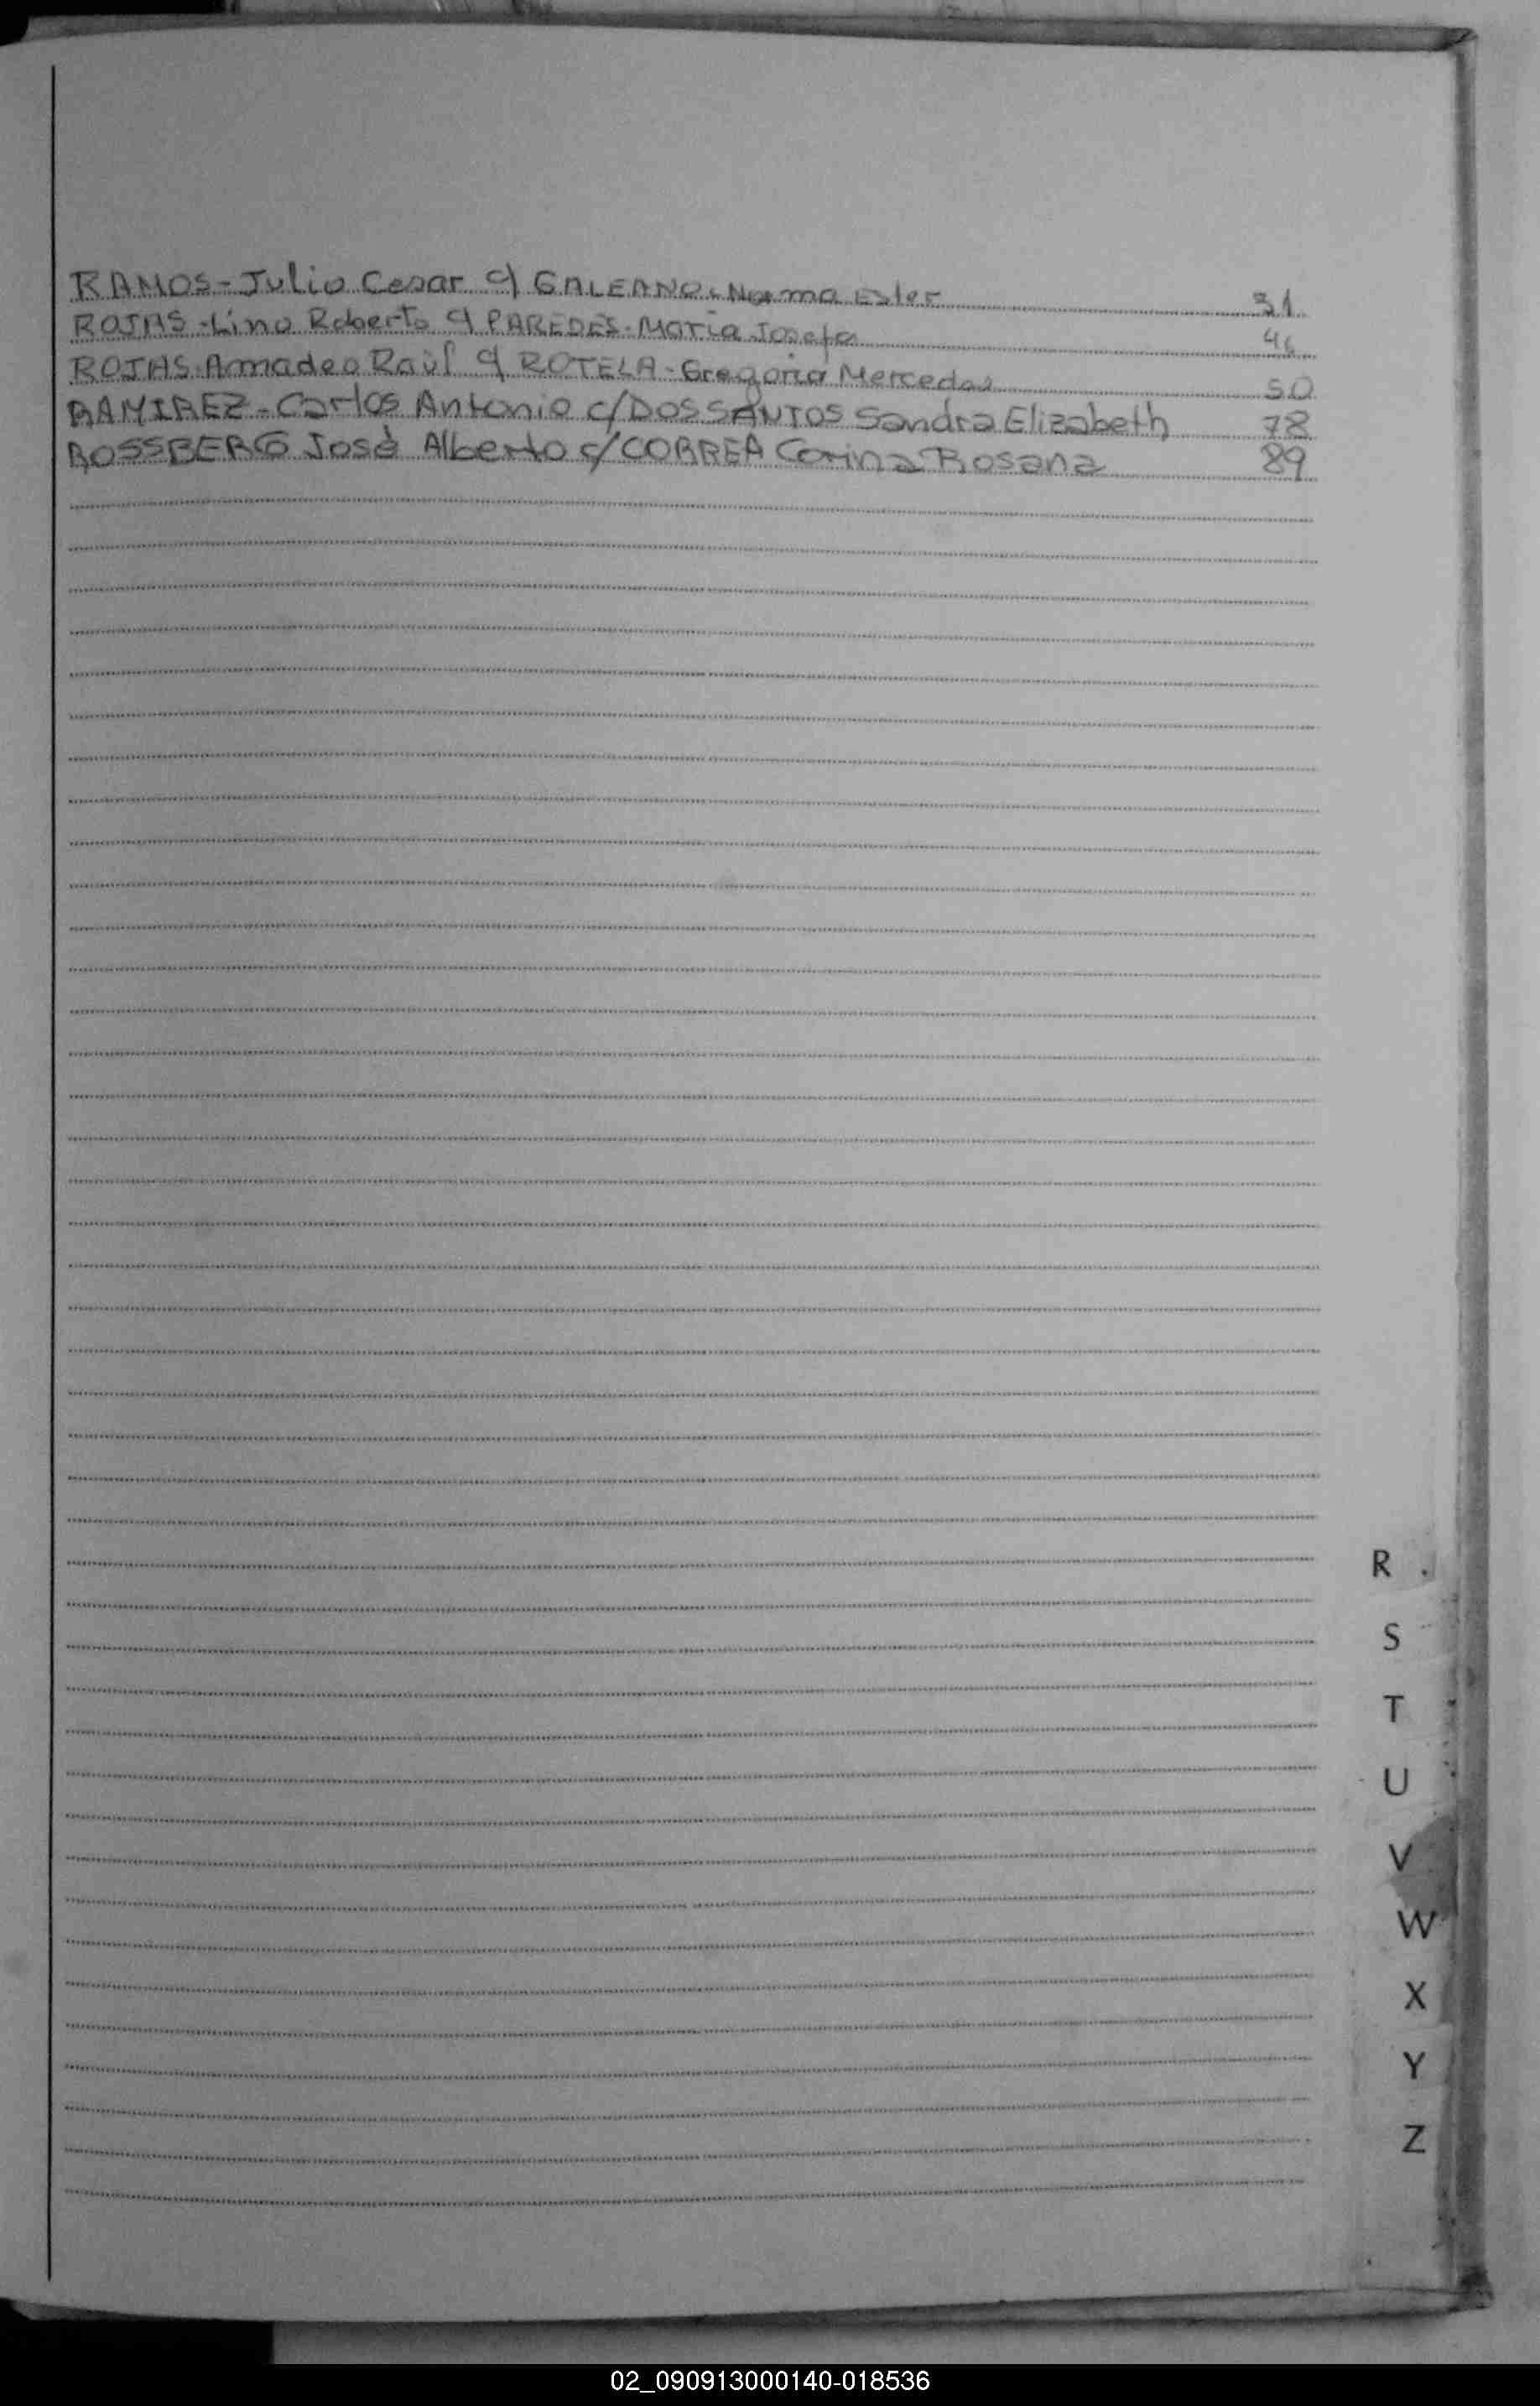 RAMOS - Julio Cesar c/ GALEANO - Norma Ester 31
ROJAS - Lino Roberto c/ PAREDES - Maria Josefa 46
ROJAS - Amadeo Raúl c/ ROTELA - Gregoria Mercedes 50
RAMIREZ - Carlos Antonio c/ DOS SANTOS Sandra Elizabeth 78
ROSSBERG José Alberto c/ CORREA Corina Rosana 89
R
S
T
U
V
W
X
Y
Z
02_090913000140-018536